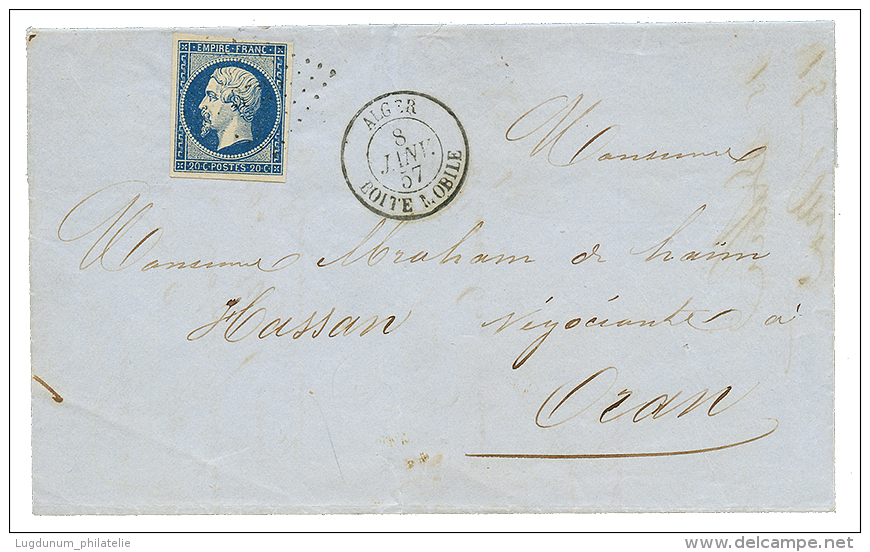 EMPIRE·FRANC·
20 C·POSTES·20 C·
ALGER
8
JANV.
57
BOITE MOBILE
Monsieur
Monsieur Abraham de haïm
Hassan Négociante à
Oran
Lugdunum_philatelie
delcampe.net